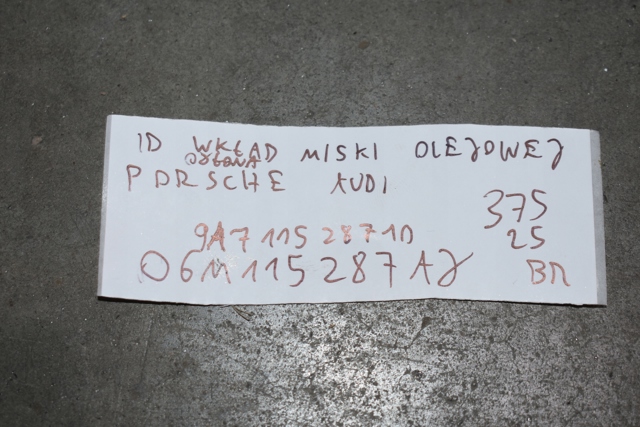 ID WKŁAD MISKI OLEJOWEJ
OSŁONA
PORSCHE AUDI
375
9A711528710
25
06M115287AJ
BR